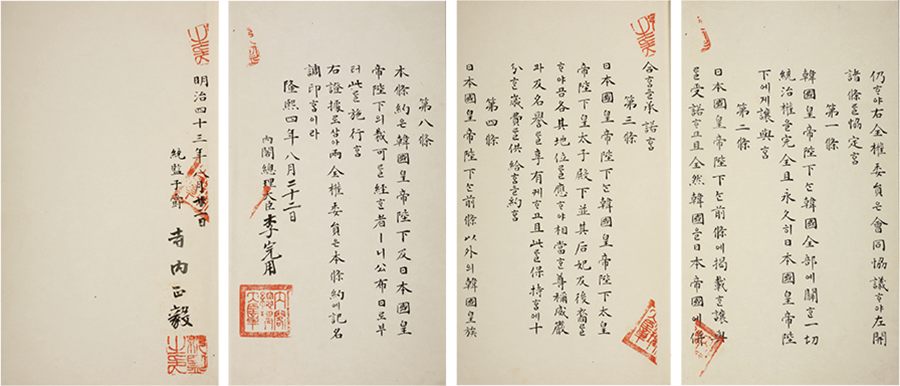 仍ᄒᆞ야右全權委員은會同協議ᄒᆞ야左開
諸條를協定홈
第一條
韓國皇帝陛下ᄂᆞᆫ韓國全部에關ᄒᆞᆫ一切
統治權을完全且永久히日本國皇帝陛
下에게讓與홈
第二條
日本國皇帝陛下ᄂᆞᆫ前條에揭載ᄒᆞᆫ讓與
를受諾ᄒᆞ고且全然韓國을日本帝國에倂
合홈을承諾홈
第三條
日本國皇帝陛下ᄂᆞᆫ韓國皇帝陛下太皇
帝陛下皇太子殿下並其后妃及後裔로
ᄒᆞ야곰各其地位를應ᄒᆞ야相當ᄒᆞᆫ尊稱威嚴
과及名譽를享有케ᄒᆞ고且此를保持홈에十
分ᄒᆞᆫ歲費를供給홈을約홈
第四條
日本國皇帝陛下ᄂᆞᆫ前條以外의韓國皇族
第八條
本條約은韓國皇帝陛下及日本國皇
帝陛下의裁可를經ᄒᆞᆫ者ㅣ니公布日로부
터此를施行홈
右證據로삼아兩全權委員은本條約에記名
調印홈이라
隆熙四年八月二十二日
內閣總理大臣李完用
內閣總理大臣章
明治四十三年八月廿二日
統監子爵寺內正毅
統監之章